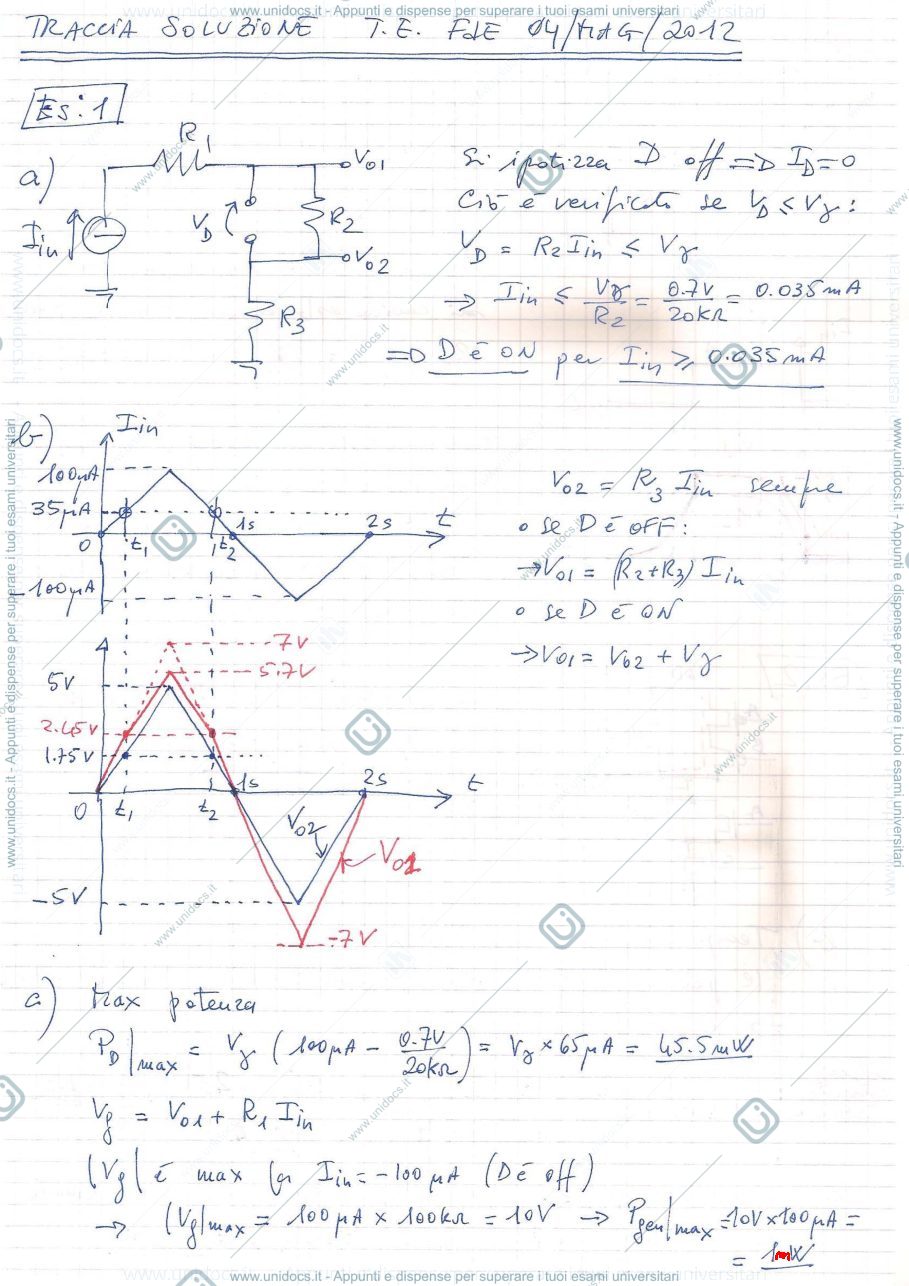 www.unidocs.it - Appunti e dispense per superare i tuoi esami universitari
TRACCIA SOLUZIONE T.E. FdE 04/MAG/2012
Es: 1
a)
R1
Vo1
Iin
VD
R2
Vo2
R3
Si ipotizza D off => ID=0
Ciò è verificato se VD ≤ Vγ:
VD = R2 Iin ≤ Vγ
→ Iin ≤ Vγ/R2 = 0.7V/20kΩ = 0.035mA
=> D è ON per Iin ≥ 0.035mA
b)
Iin
100μA
35μA
0
t1
t2
1s
2s
t
-100μA
Vo2 = R3 Iin sempre
• se D è OFF:
→ Vo1 = (R2+R3) Iin
• se D è ON
→ Vo1 = Vo2 + Vγ
7V
5.7V
5V
2.45V
1.75V
0
t1
t2
1s
2s
t
Vo2
Vo1
-5V
-7V
c) Max potenza
PD|max = Vγ (100μA - 0.7V/20kΩ) = Vγ × 65μA = 45.5mW
Vg = Vo1 + R1 Iin
|Vg| è max per Iin = -100μA (D è off)
→ |Vg|max = 100μA × 100kΩ = 10V → Pgen|max = 10V×100μA =
= 1mW
www.unidocs.it - Appunti e dispense per superare i tuoi esami universitari